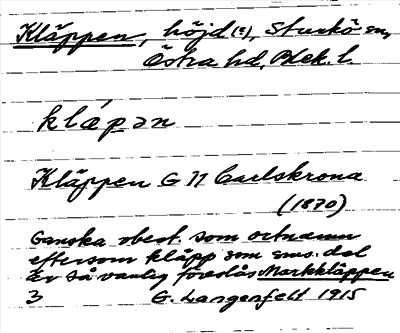 Kläppen, höjd (?), Sturkö sn,
Östra hd, Blek. l.
klæ´pən
Kläppen G 77 Carlskrona
(1870)
Ganska obest. som ortnamn
eftersom kläpp som sms. del
är så vanlig föreslås Markkläppen
3 G. Langenfelt 1915